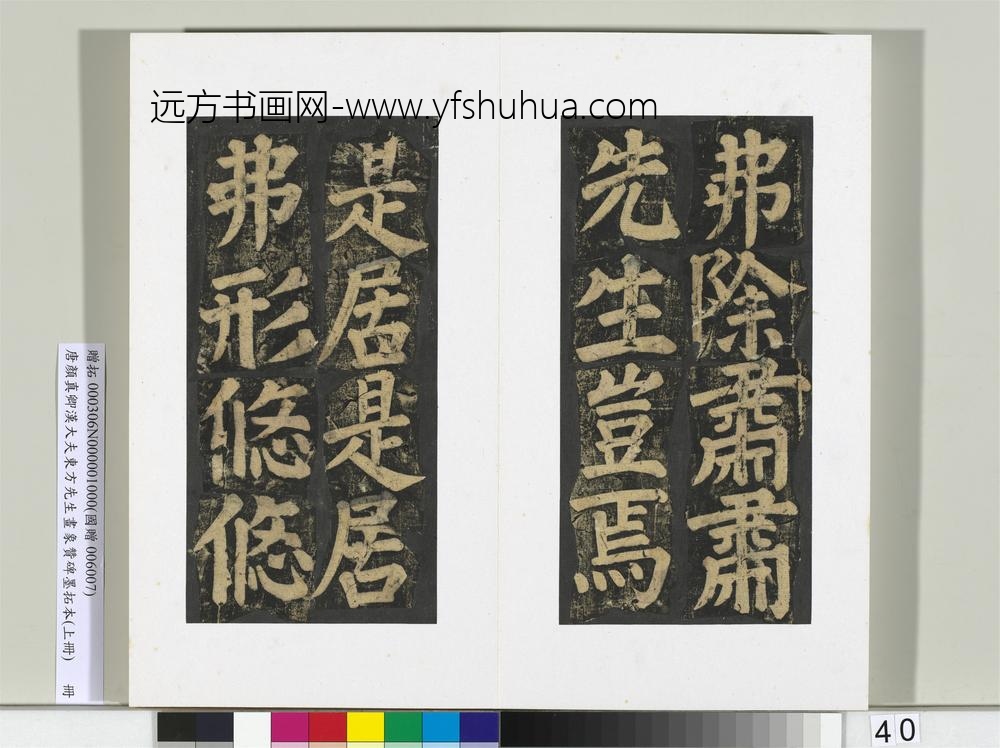 远方书画网-www.yfshuhua.com
弗除肅肅
先生豈焉
是居是居
弗形悠悠
贈拓 000306N000001000(國贈 006007)
唐顏真卿漢大夫東方先生畫象贊碑墨拓本(上冊) 冊
40